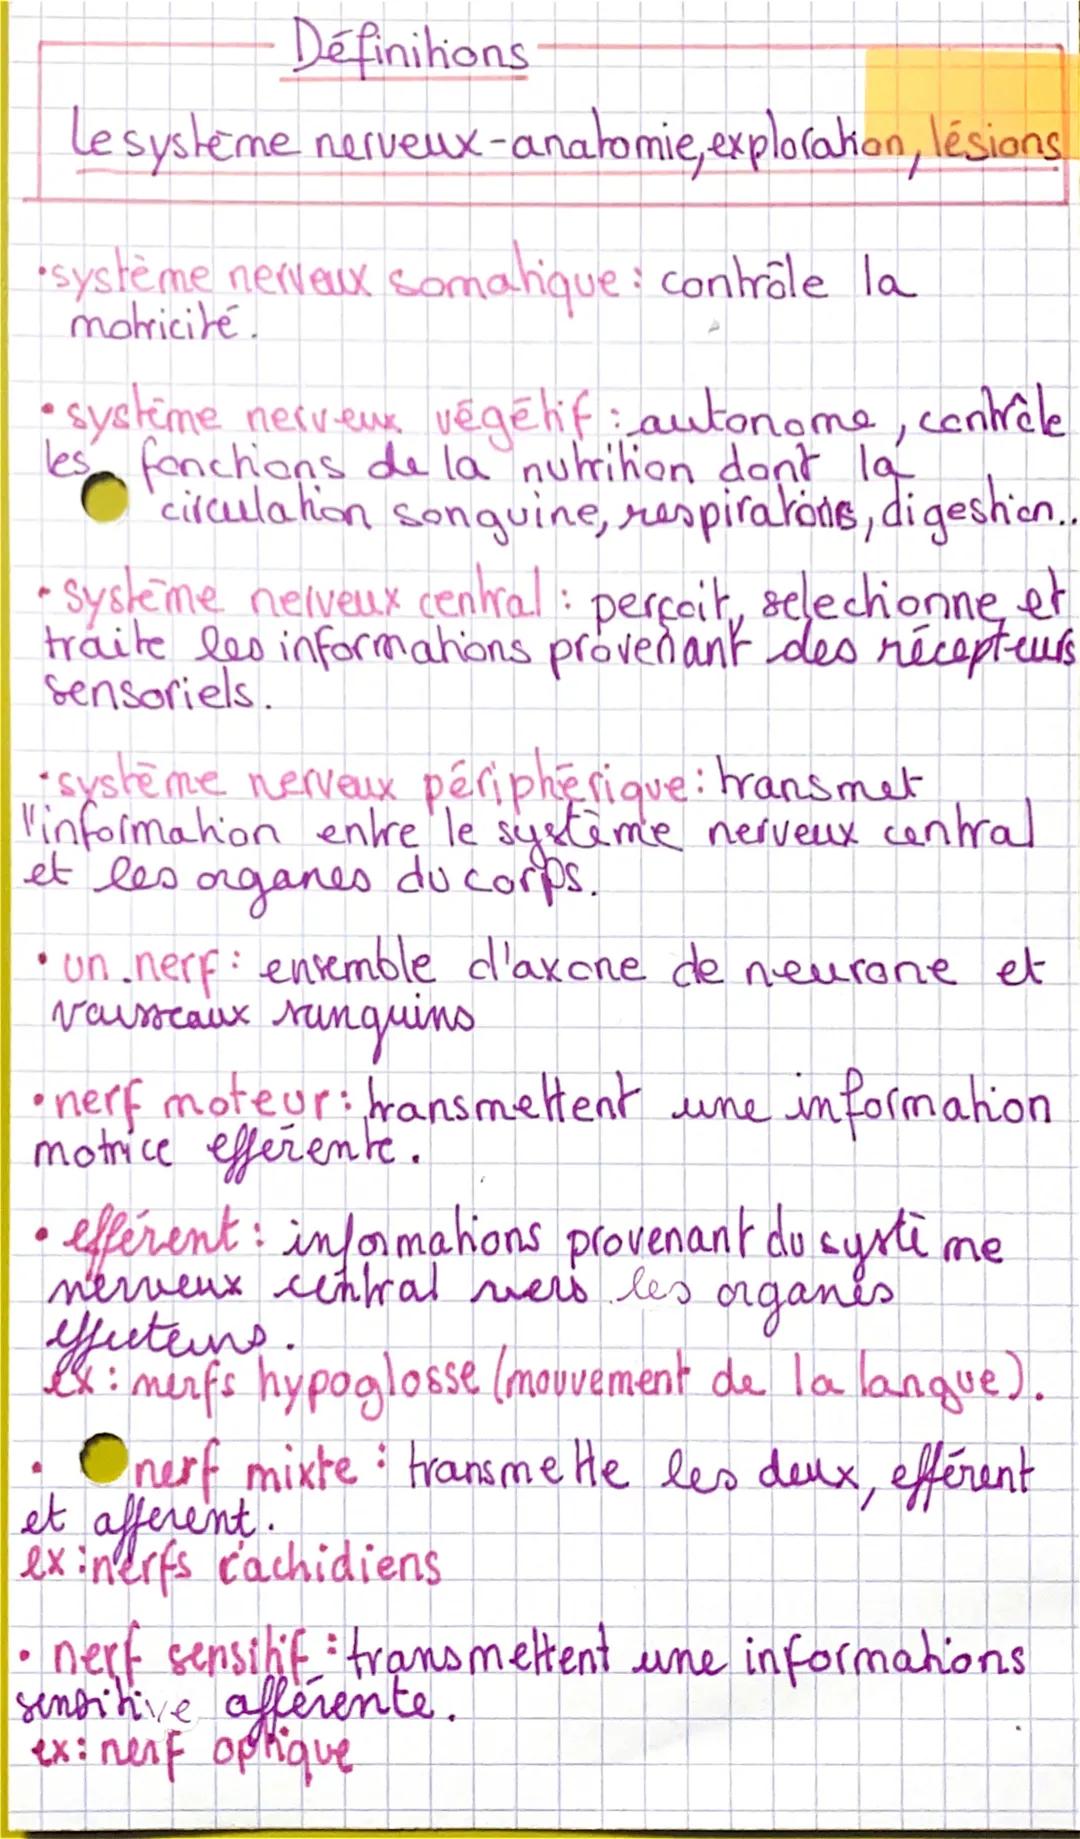 Définitions
Le système nerveux-anatomie, exploration, lésions
•système nerveux somatique : contrôle la
motricité.
• système nerveux végétif : autonome, contrôle
les fonctions de la nutrition dont la
circulation sanguine, respirations, digestion..
• Système nerveux central : perçoit, selectionne et
traite les informations provenant des récepteurs
sensoriels.
•système nerveux périphérique : transmet
l'information entre le système nerveux central
et les organes du corps.
• un nerf : ensemble d'axone de neurone et
vaisseaux sanguins
•nerf moteur : transmettent une information
motrice efférente.
• efférent : informations provenant du système
nerveux central vers les organes
effecteurs.
ex : nerfs hypoglosse (mouvement de la langue).
• nerf mixte : transmette les deux, efférent
et afferent.
ex : nerfs rachidiens
• nerf sensitif : transmettent une informations
sensitive afférente.
ex : nerf optique